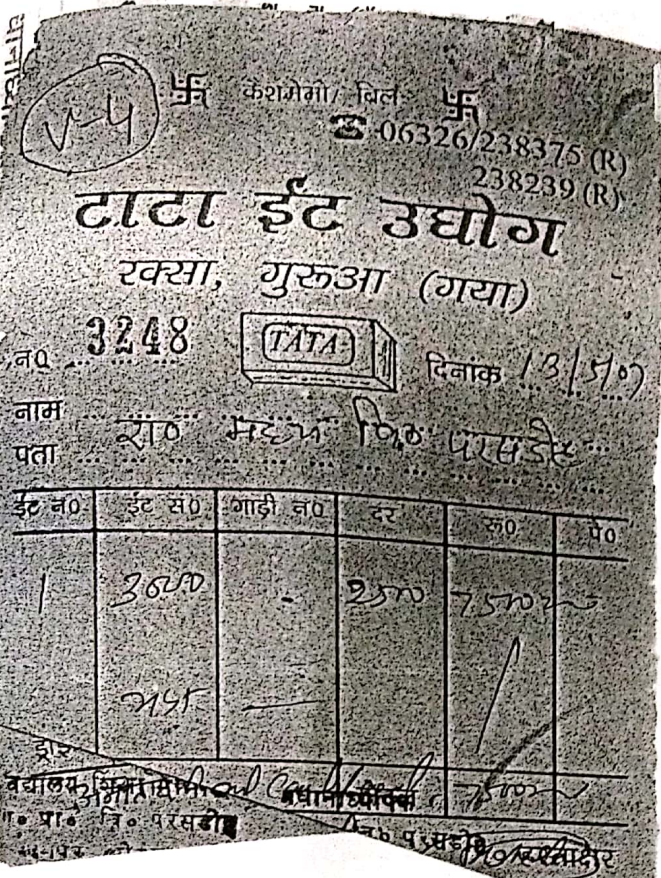 V-4
卐 कैशमेमो/ बिल 卐
☎ 06326/238375 (R)
238239 (R)
टाटा ईंट उद्योग
रक्सा, गुरूआ (गया)
न0 3248 TATA दिनांक 13/5/07
नाम
पता रा० मध्य वि० परसडीह
ईंट न0 ईंट स0 गाड़ी न0 दर रू0 पै0
1 3000 - 2500 7500
प्रधानाध्यापक 7500
प्रा० वि० परसडीह
वि० परसडीह हस्ताक्षर